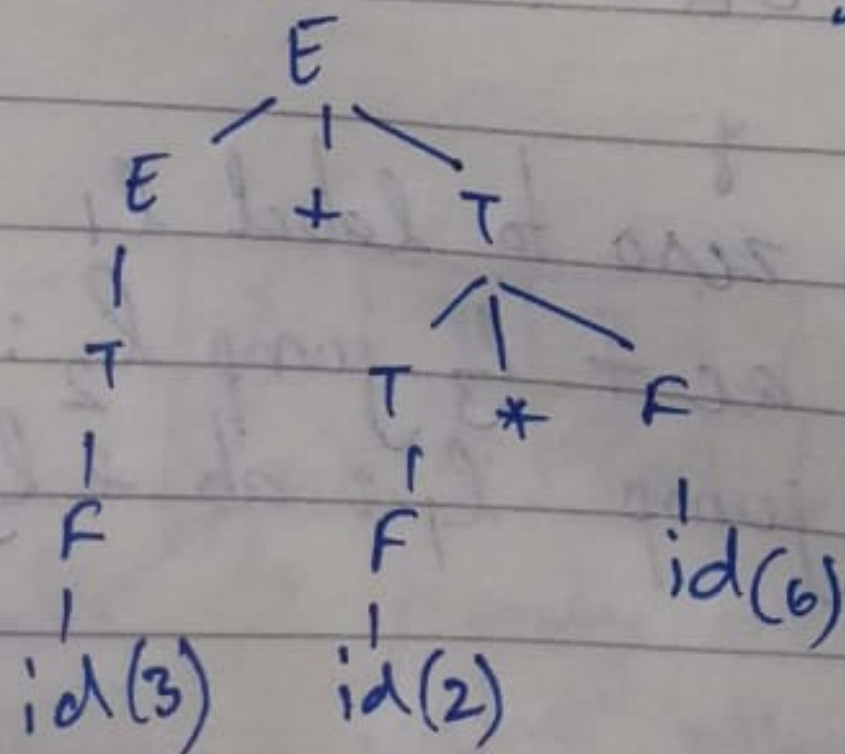 E
E + T
T
T * F
F F id(6)
id(3) id(2)